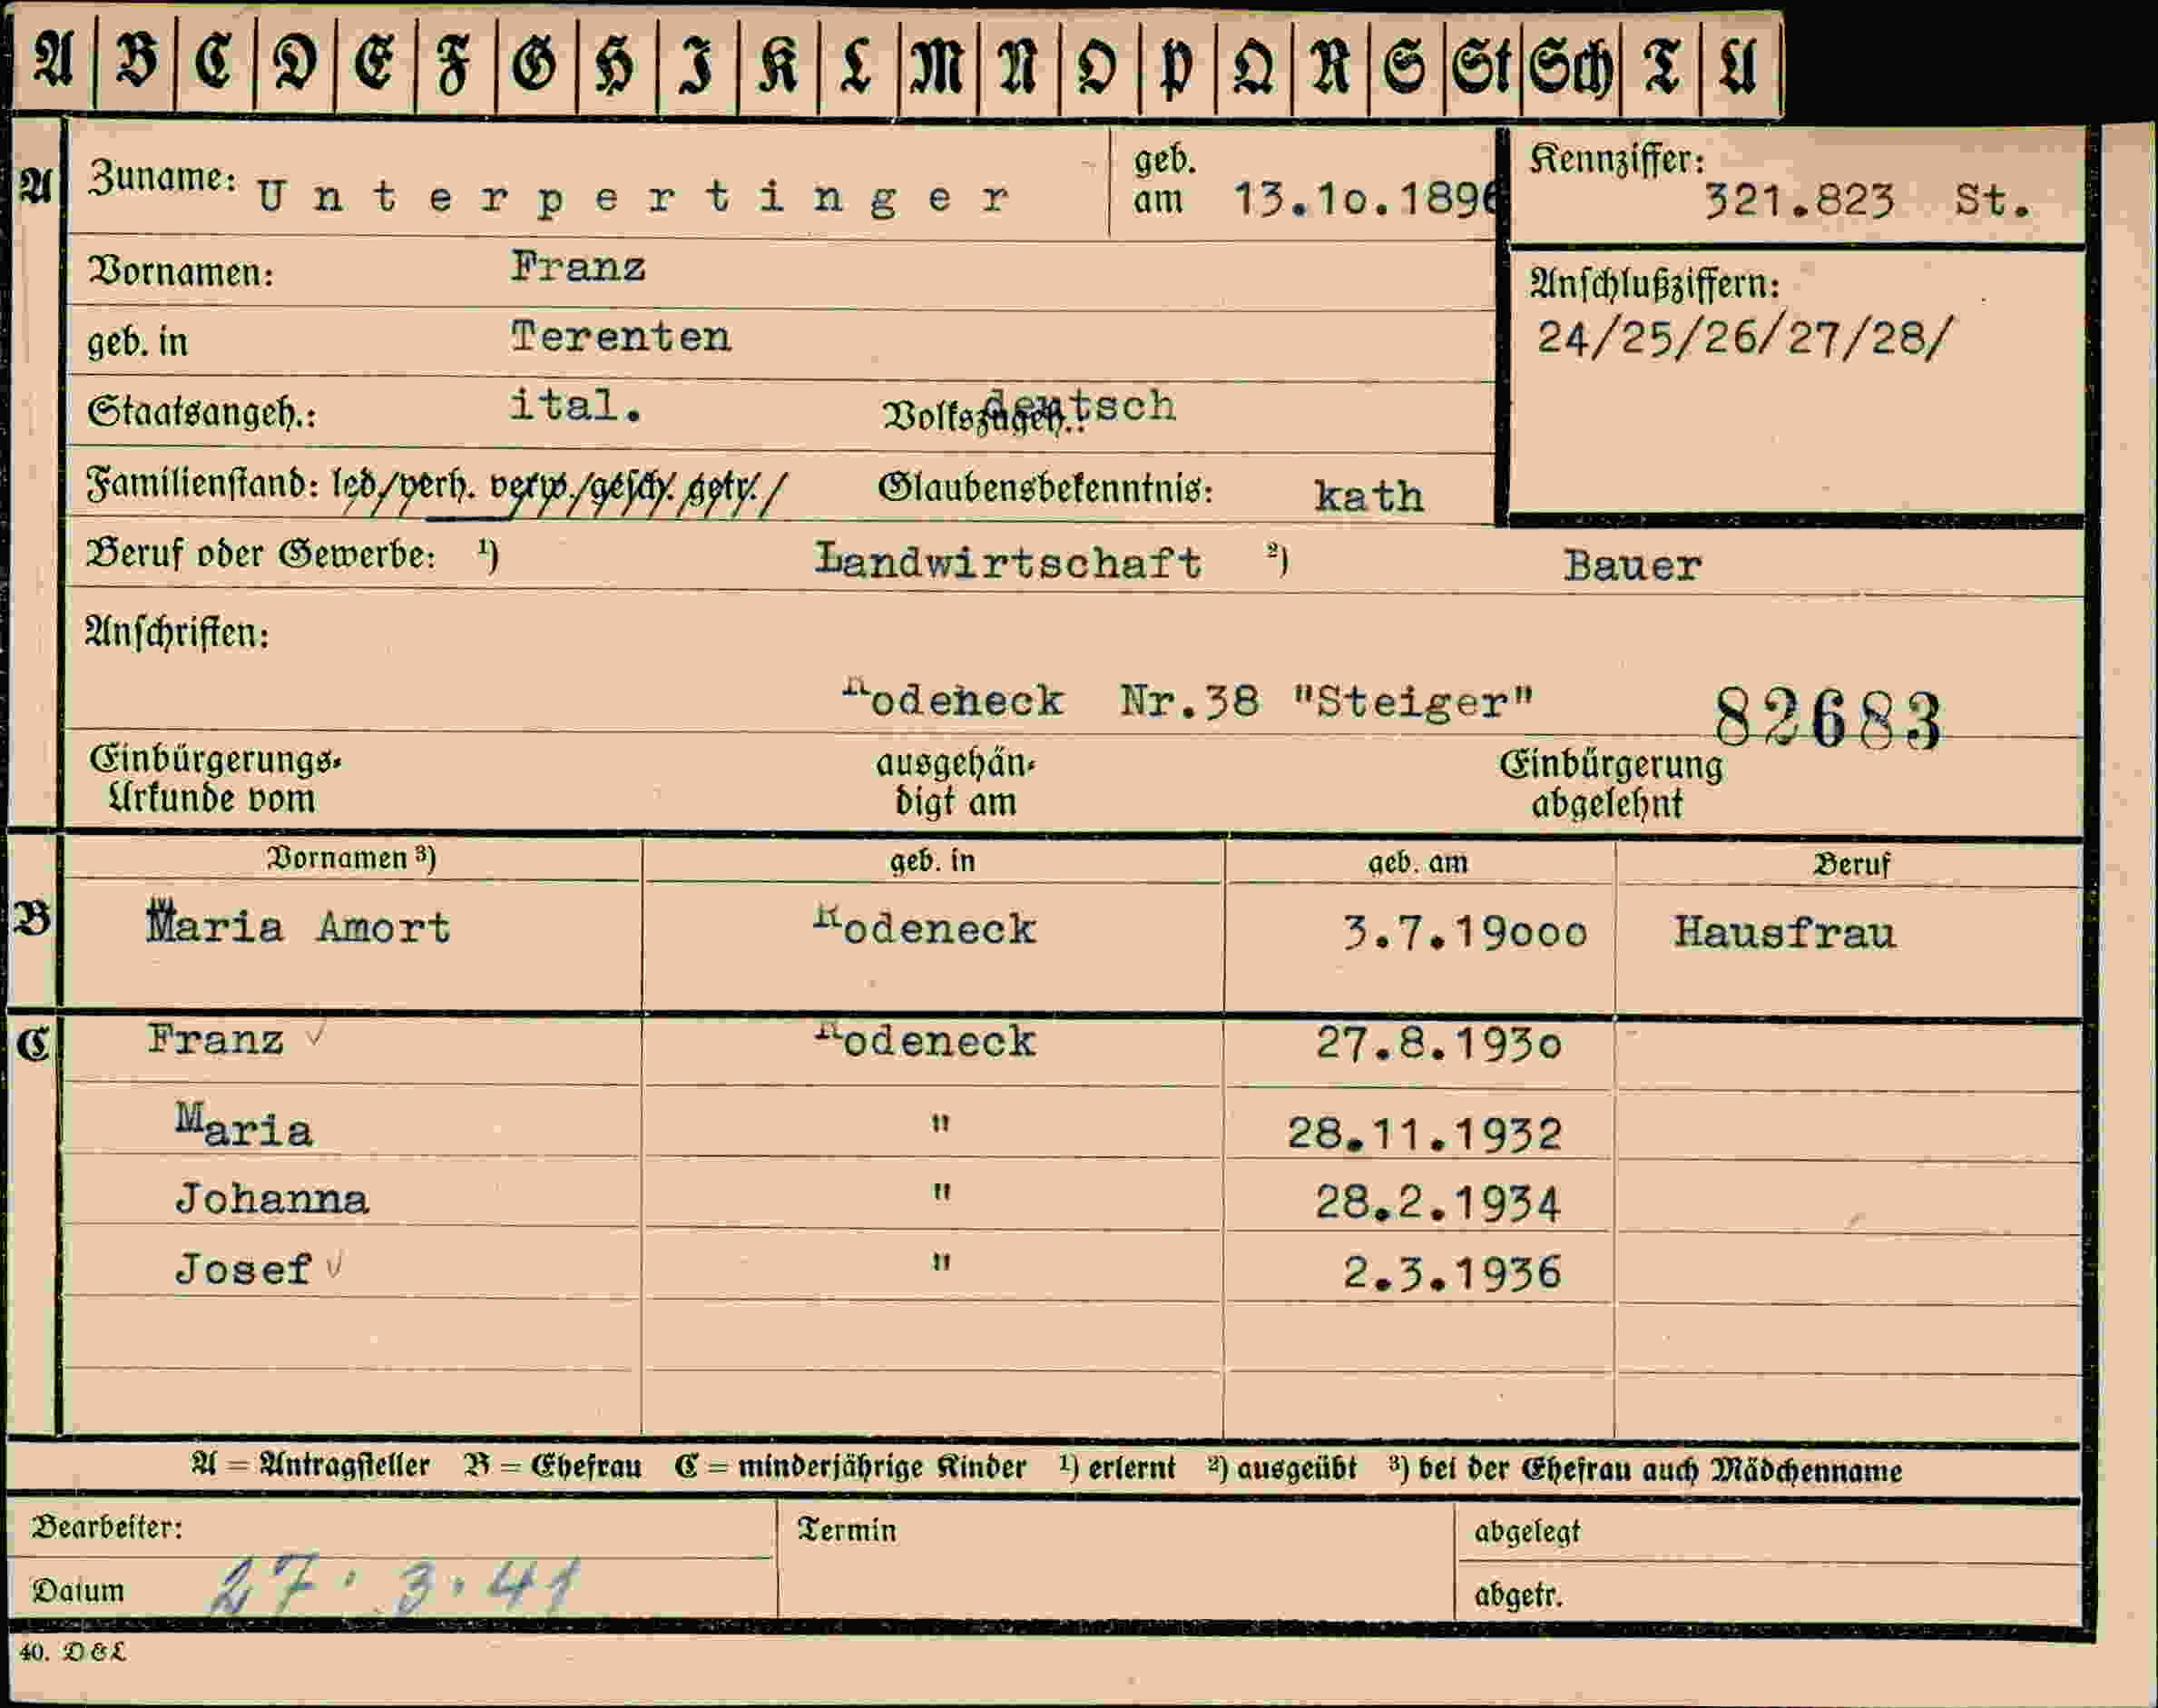 A B C D E F G H I K L M N O P Q R S St Sch T U
A Zuname: Unterpertinger geb. am 13.10.1896 Kennziffer: 321.823 St.
Vornamen: Franz
Anschlußziffern:
geb. in Terenten 24/25/26/27/28/
Staatsangeh.: ital. Volkszugeh.: deutsch
Familienstand: led./verh. verw./gesch. getr./ Glaubensbekenntnis: kath
Beruf oder Gewerbe: 1) Landwirtschaft 2) Bauer
Anschriften:
Rodeneck Nr.38 "Steiger" 82683
Einbürgerungs- ausgehän- Einbürgerung
Urkunde vom digt am abgelehnt
Vornamen 3) geb. in geb. am Beruf
B Maria Amort Rodeneck 3.7.19000 Hausfrau
C Franz ✓ Rodeneck 27.8.1930
Maria " 28.11.1932
Johanna " 28.2.1934
Josef ✓ " 2.3.1936
A = Antragsteller B = Ehefrau C = minderjährige Kinder 1) erlernt 2) ausgeübt 3) bei der Ehefrau auch Mädchenname
Bearbeiter: Termin abgelegt
Datum 27.3.41 abgetr.
40. D & L